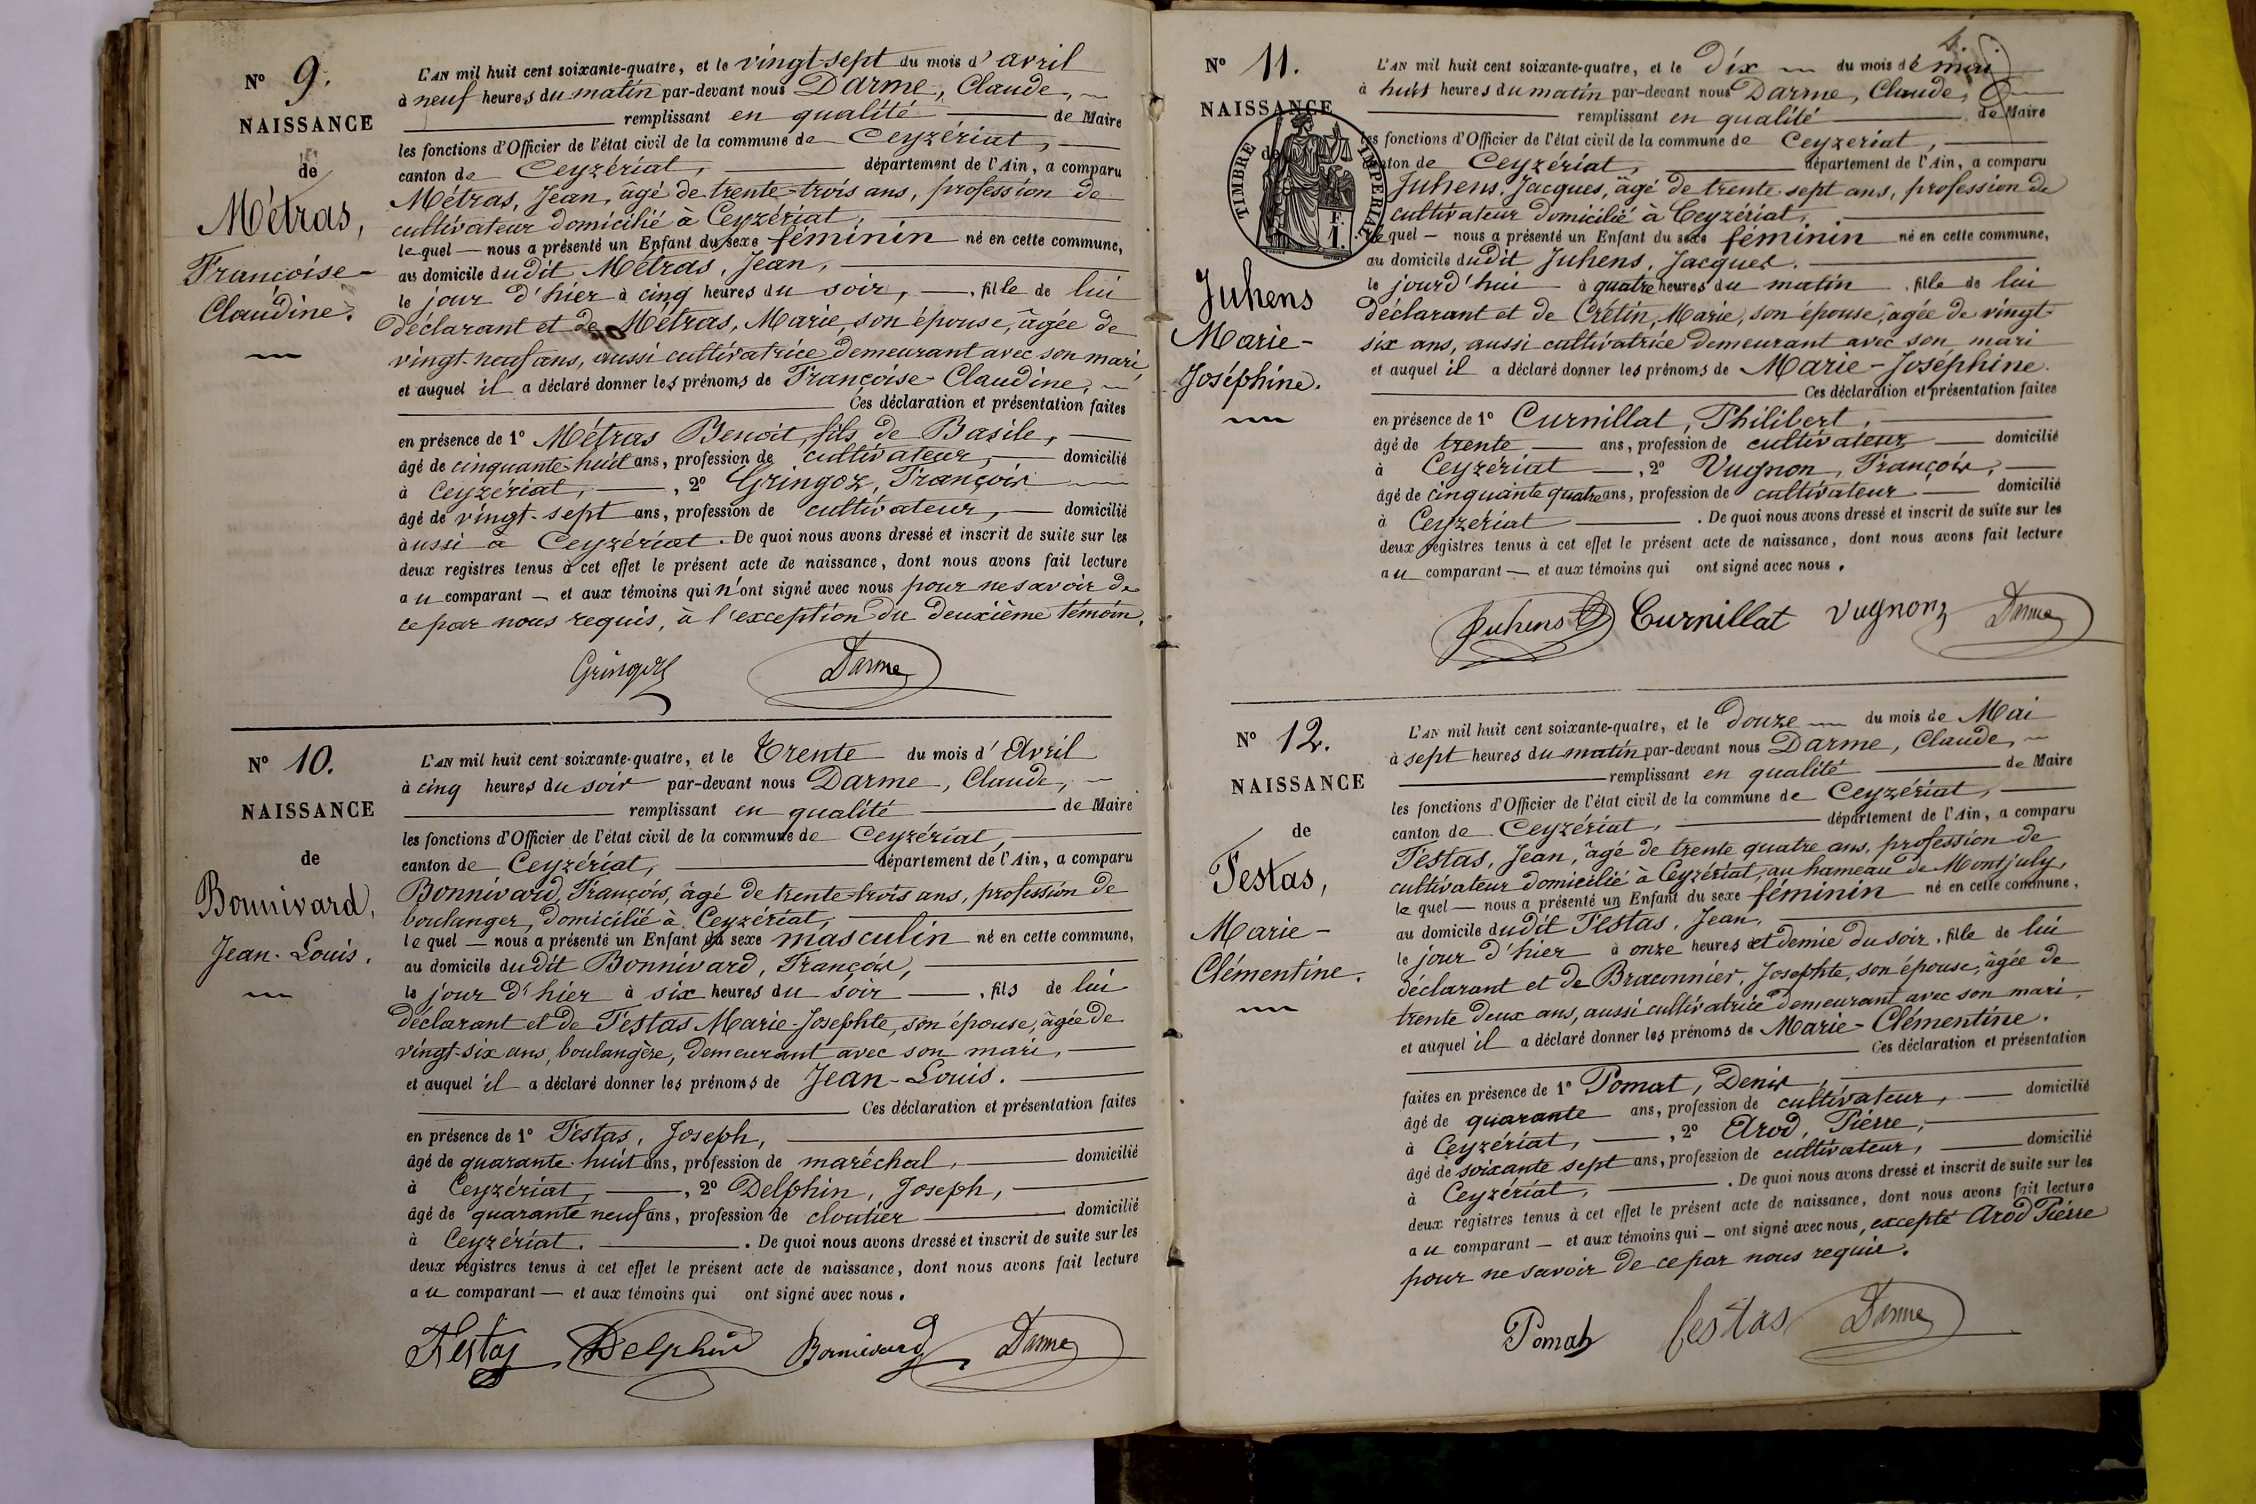 N° 9.
NAISSANCE
de
Métras,
Françoise-
Claudine.
L'AN mil huit cent soixante-quatre, et le vingt-sept du mois d'avril
à neuf heures du matin par-devant nous Darme, Claude,
remplissant en qualité de Maire
les fonctions d'Officier de l'état civil de la commune de Ceyzériat,
canton de Ceyzériat, département de l'Ain, a comparu
Métras, Jean, âgé de trente-trois ans, profession de
cultivateur domicilié à Ceyzériat,
lequel nous a présenté un Enfant du sexe féminin né en cette commune,
au domicile dudit Métras, Jean,
le jour d'hier à cinq heures du soir, fille de lui
déclarant et de Métras, Marie, son épouse, âgée de
vingt-neuf ans, aussi cultivatrice demeurant avec son mari,
et auquel il a déclaré donner les prénoms de Françoise-Claudine.
Ces déclaration et présentation faites
en présence de 1° Métras Benoit, fils de Basile,
âgé de cinquante-huit ans, profession de cultivateur, domicilié
à Ceyzériat, , 2° Gringoz, François
âgé de vingt-sept ans, profession de cultivateur, domicilié
aussi à Ceyzériat. De quoi nous avons dressé et inscrit de suite sur les
deux registres tenus à cet effet le présent acte de naissance, dont nous avons fait lecture
au comparant et aux témoins qui n'ont signé avec nous pour ne savoir de
ce par nous requis, à l'exception du deuxième témoin.
Gringoz Darme
N° 10.
NAISSANCE
de
Bonnivard,
Jean-Louis.
L'AN mil huit cent soixante-quatre, et le Trente du mois d'Avril
à cinq heures du soir par-devant nous Darme, Claude,
remplissant en qualité de Maire
les fonctions d'Officier de l'état civil de la commune de Ceyzériat,
canton de Ceyzériat, département de l'Ain, a comparu
Bonnivard, François, âgé de trente-trois ans, profession de
boulanger, domicilié à Ceyzériat,
lequel nous a présenté un Enfant du sexe masculin né en cette commune,
au domicile dudit Bonnivard, François,
le jour d'hier à six heures du soir , fils de lui
déclarant et de Testas Marie-Josephte, son épouse, âgée de
vingt-six ans, boulangère, demeurant avec son mari,
et auquel il a déclaré donner les prénoms de Jean-Louis.
Ces déclaration et présentation faites
en présence de 1° Testas, Joseph,
âgé de quarante-huit ans, profession de maréchal, domicilié
à Ceyzériat, , 2° Delphin, Joseph,
âgé de quarante neuf ans, profession de cloutier domicilié
à Ceyzériat. . De quoi nous avons dressé et inscrit de suite sur les
deux registres tenus à cet effet le présent acte de naissance, dont nous avons fait lecture
au comparant et aux témoins qui ont signé avec nous.
Testas Delphin Bonnivard Darme
N° 11.
NAISSANCE
de
TIMBRE IMPERIAL
Juhens
Marie-
Joséphine.
L'AN mil huit cent soixante-quatre, et le dix du mois de mai
à huit heures du matin par-devant nous Darme, Claude,
remplissant en qualité de Maire
les fonctions d'Officier de l'état civil de la commune de Ceyzeriat,
canton de Ceyzériat, département de l'Ain, a comparu
Juhens, Jacques, âgé de trente-sept ans, profession de
cultivateur domicilié à Ceyzériat,
lequel nous a présenté un Enfant du sexe féminin né en cette commune,
au domicile dudit Juhens, Jacques.
le jourd'hui à quatre heures du matin , fille de lui
déclarant et de Crétin, Marie, son épouse, âgée de vingt-
six ans, aussi cultivatrice demeurant avec son mari
et auquel il a déclaré donner les prénoms de Marie-Joséphine.
Ces déclaration et présentation faites
en présence de 1° Curnillat, Philibert,
âgé de trente ans, profession de cultivateur domicilié
à Ceyzériat , 2° Vugnon, François,
âgé de cinquante quatre ans, profession de cultivateur domicilié
à Ceyzériat . De quoi nous avons dressé et inscrit de suite sur les
deux registres tenus à cet effet le présent acte de naissance, dont nous avons fait lecture
au comparant et aux témoins qui ont signé avec nous.
Juhens Curnillat Vugnon Darme
N° 12.
NAISSANCE
de
Testas,
Marie-
Clémentine.
L'AN mil huit cent soixante-quatre, et le douze du mois de Mai
à sept heures du matin par-devant nous Darme, Claude,
remplissant en qualité de Maire
les fonctions d'Officier de l'état civil de la commune de Ceyzériat,
canton de Ceyzériat, département de l'Ain, a comparu
Testas, Jean, âgé de trente quatre ans, profession de
cultivateur domicilié à Ceyzériat, au hameau de Montjuly,
lequel nous a présenté un Enfant du sexe féminin né en cette commune,
au domicile dudit Testas, Jean,
le jour d'hier à onze heures et demie du soir, fille de lui
déclarant et de Braconnier, Josephte, son épouse, âgée de
trente deux ans, aussi cultivatrice demeurant avec son mari,
et auquel il a déclaré donner les prénoms de Marie-Clémentine.
Ces déclaration et présentation
faites en présence de 1° Pomat, Denis,
âgé de quarante ans, profession de cultivateur, domicilié
à Ceyzériat, , 2° Arod, Pierre,
âgé de soixante sept ans, profession de cultivateur, domicilié
à Ceyzériat, . De quoi nous avons dressé et inscrit de suite sur les
deux registres tenus à cet effet le présent acte de naissance, dont nous avons fait lecture
au comparant et aux témoins qui ont signé avec nous, excepté Arod Pierre
pour ne savoir de ce par nous requis.
Pomat Testas Darme